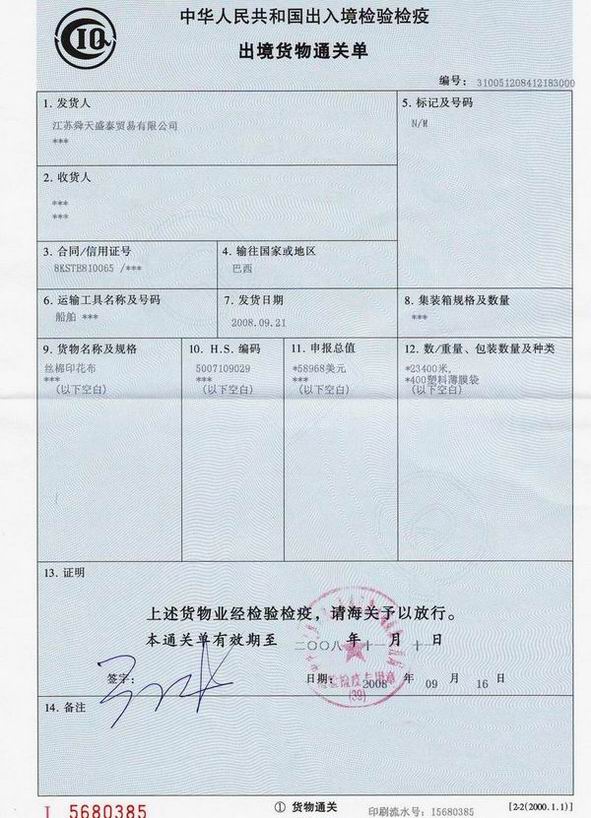 CIQ
中华人民共和国出入境检验检疫
出境货物通关单
编号: 310051208412183000
1. 发货人
江苏舜天盛泰贸易有限公司
***
5. 标记及号码
N/M
2. 收货人
***
***
3. 合同/信用证号
8KSTB810065 /***
4. 输往国家或地区
巴西
6. 运输工具名称及号码
船舶 ***
7. 发货日期
2008.09.21
8. 集装箱规格及数量
***
9. 货物名称及规格
丝棉印花布
***
(以下空白)
10. H.S. 编码
5007109029
***
(以下空白)
11. 申报总值
*58968美元
***
(以下空白)
12. 数/重量、包装数量及种类
*23400米,
*400塑料薄膜袋
(以下空白)
13. 证明
上述货物业经检验检疫，请海关予以放行。
本通关单有效期至 二〇〇八 年 十一 月 十一 日
签字:
日期: 2008 年 09 月 16 日
检验检疫专用章
(39)
14. 备注
I 5680385
① 货物通关
印刷流水号: I5680385
[2-2(2000.1.1)]